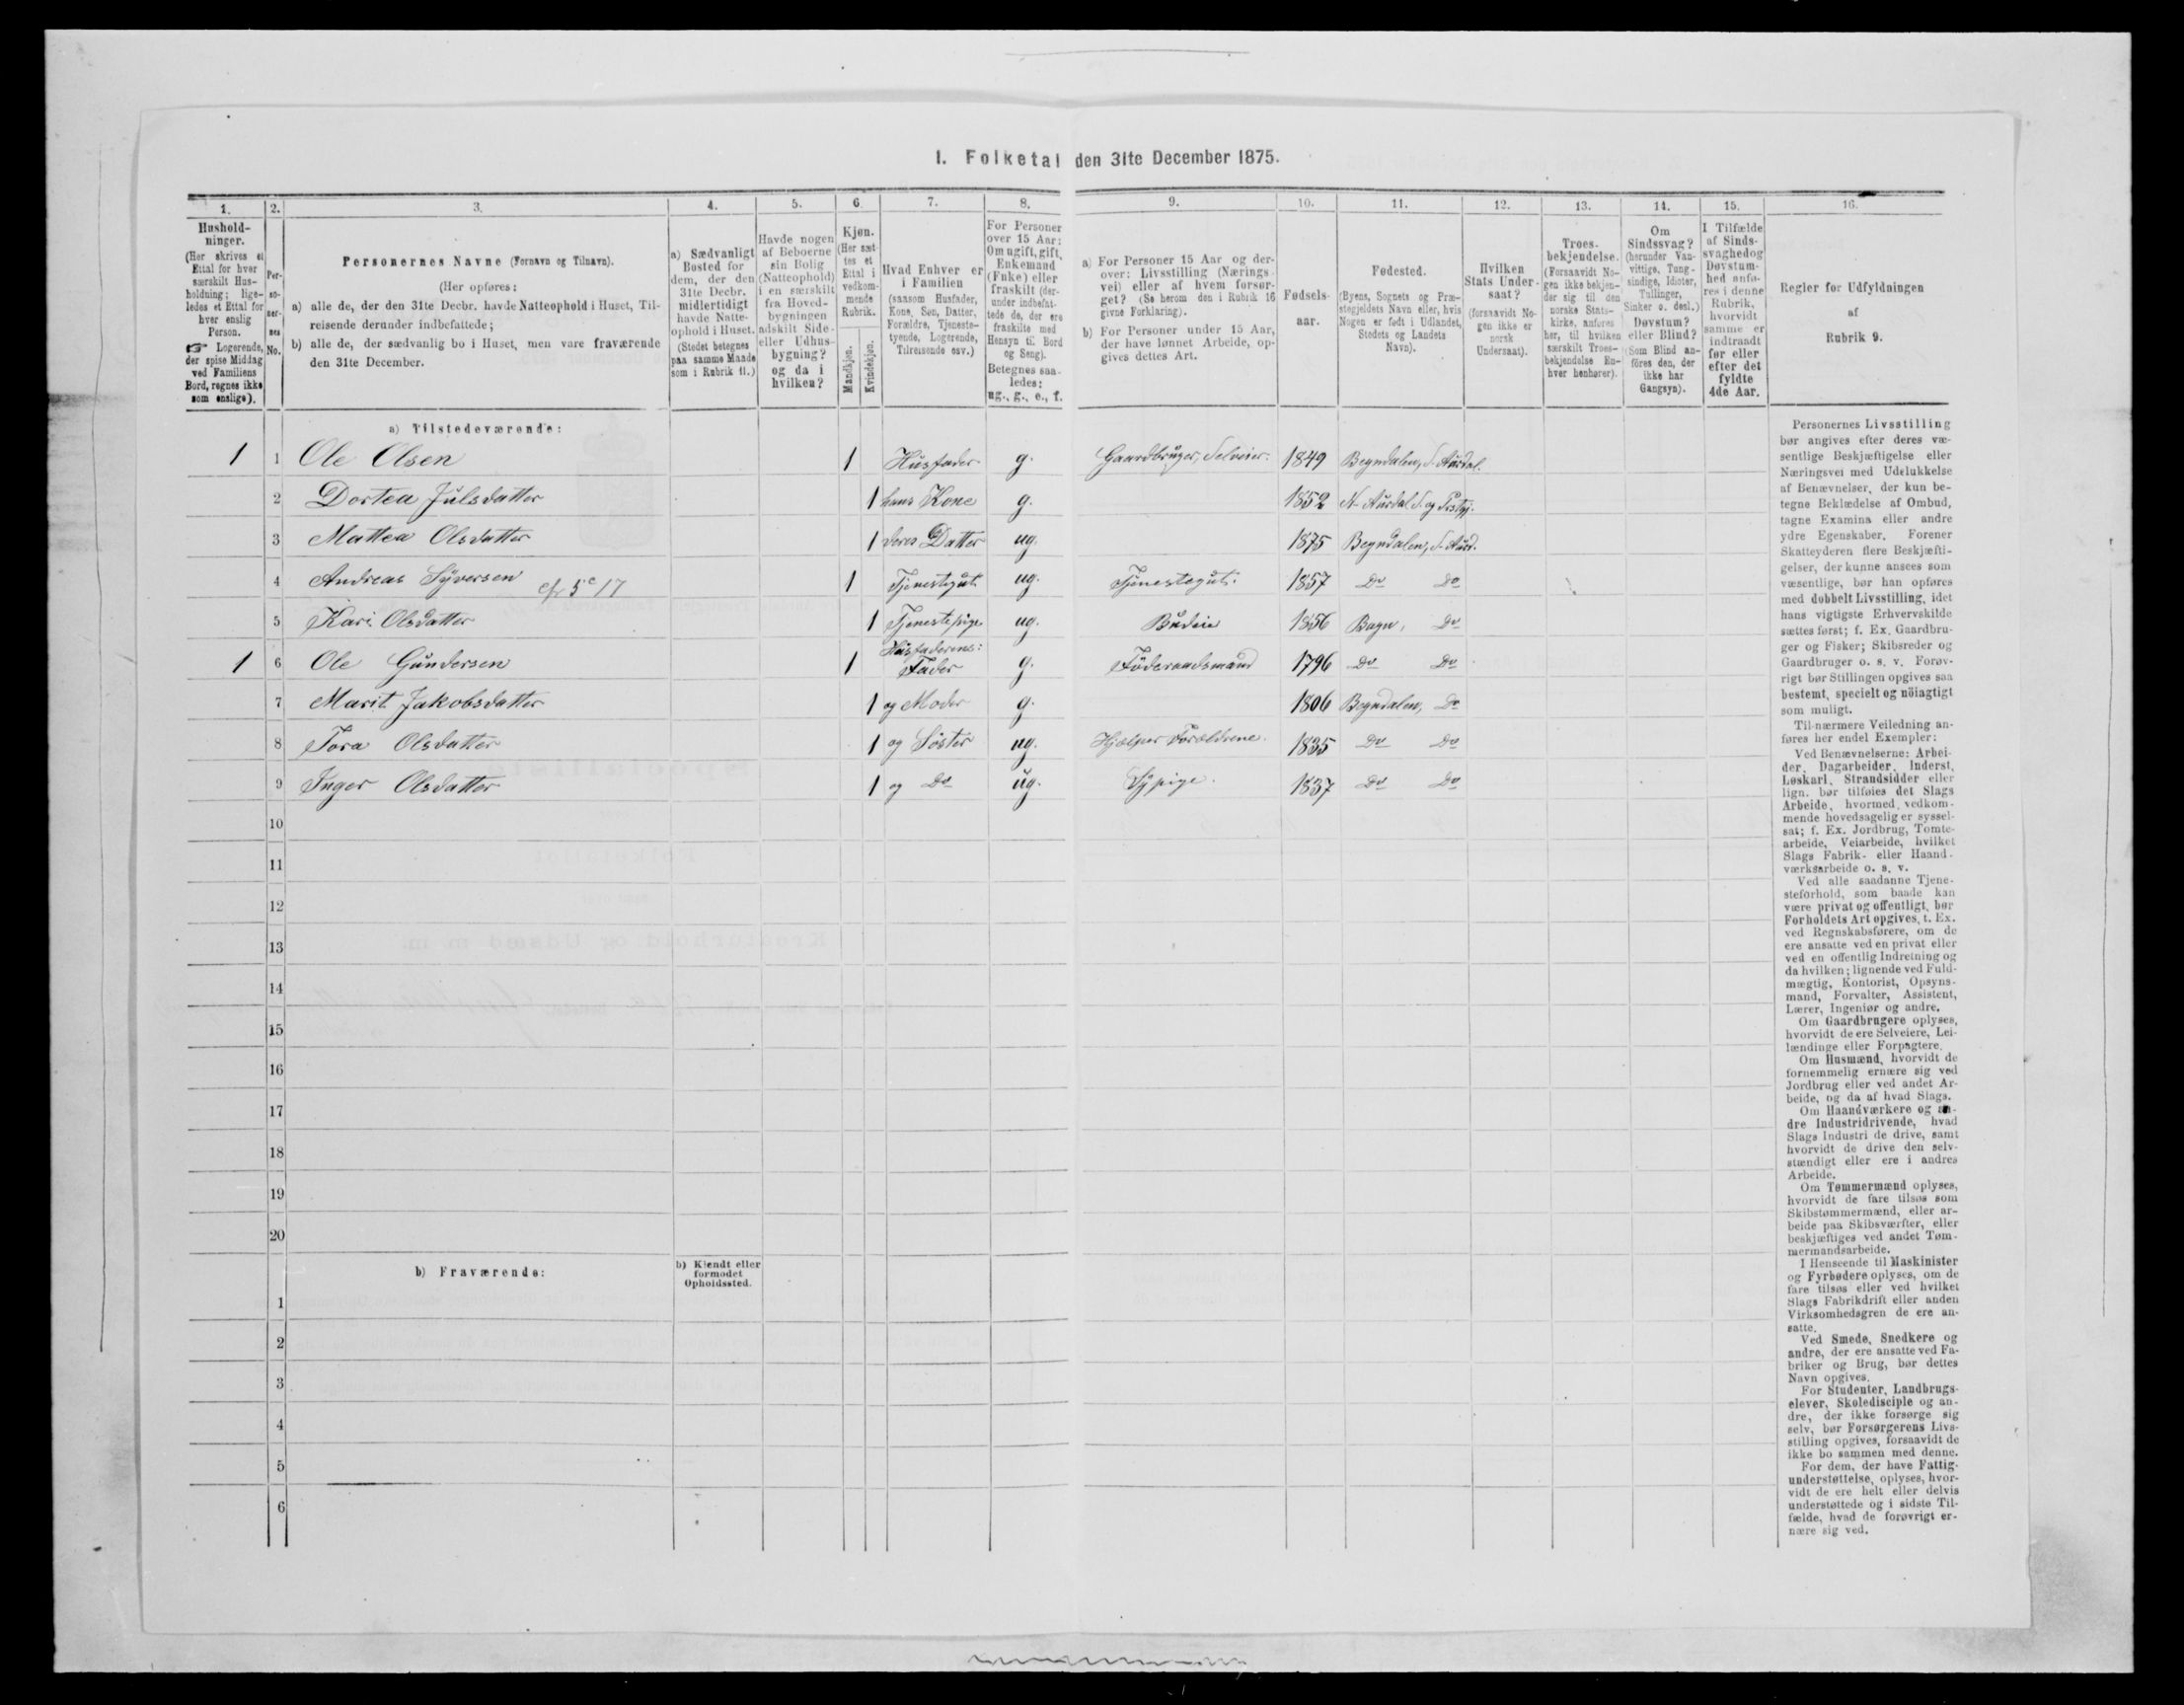 1. Folketal den 31te December 1875.
1. 2. 3. 4. 5. 6. 7. 8. 9. 10. 11. 12. 13. 14. 15. 16.
Hushold-
ninger.
(Her skrives et
Ettal for hver
særskilt Hus-
holdning; lige-
ledes et Ettal for
hver enslig
Person.
☞ Logerende,
der spise Middag
ved Familiens
Bord, regnes ikke
som enslige).
Per-
so-
ner-
nes
No.
Personernes Navne (Fornavn og Tilnavn).
(Her opføres:
a) alle de, der den 31te Decbr. havde Natteophold i Huset, Til-
reisende derunder indbefattede;
b) alle de, der sædvanlig bo i Huset, men vare fraværende
den 31te December.
a) Sædvanligt
Bosted for
dem, der den
31te Decbr.
midlertidigt
havde Natte-
ophold i Huset.
(Stedet betegnes
paa samme Maade
som i Rubrik 11.)
Havde nogen
af Beboerne
sin Bolig
(Natteophold)
i en særskilt
fra Hoved-
bygningen
adskilt Side-
eller Udhus-
bygning?
og da i
hvilken?
Kjøn.
(Her sæt-
tes et
Ettal i
vedkom-
mende
Rubrik.
Mandkjøn.
Kvindekjøn.
Hvad Enhver er
i Familien
(saasom Husfader,
Kone, Søn, Datter,
Forældre, Tjeneste-
tyende, Logerende,
Tilreisende osv.)
For Personer
over 15 Aar:
Om ugift, gift,
Enkemand
(Enke) eller
fraskilt (der-
under indbefat-
tede de, der ere
fraskilte med
Hensyn til Bord
og Seng).
Betegnes saa-
ledes:
ug., g., e., f.
a) For Personer 15 Aar og der-
over: Livsstilling (Nærings-
vei) eller af hvem forsør-
get? (Se herom den i Rubrik 16
givne Forklaring).
b) For Personer under 15 Aar,
der have lønnet Arbeide, op-
gives dettes Art.
Fødsels-
aar.
Fødested.
(Byens, Sognets og Præ-
stegjeldets Navn eller, hvis
Nogen er født i Udlandet,
Stedets og Landets
Navn).
Hvilken
Stats Under-
saat?
(forsaavidt No-
gen ikke er
norsk
Undersaat).
Troes-
bekjendelse.
(Forsaavidt No-
gen ikke bekjen-
der sig til den
norske Stats-
kirke, anføres
her, til hvilken
særskilt Troes-
bekjendelse En-
hver henhører).
Om
Sindssvag?
(herunder Van-
vittige, Tung-
sindige, Idioter,
Tullinger,
Sinker o. desl.)
Døvstum?
eller Blind?
(Som Blind an-
føres den, der
ikke har
Gangsyn).
I Tilfælde
af Sinds-
svaghed og
Døvstum-
hed anfø-
res i denne
Rubrik,
hvorvidt
samme er
indtraadt
før eller
efter det
fyldte
4de Aar.
Regler for Udfyldningen
af
Rubrik 9.
a) Tilstedeværende:
1 1 Ole Olsen 1 Husfader g. Gaardbruger, Selveier. 1849 Begndalen, S. Aurdal.
2 Dortea Julsdatter 1 hans Kone g. 1852 N. Aurdal S. og Prstgj.
3 Mattea Olsdatter 1 deres Datter ug. 1875 Begndalen, S. Aurd.
4 Andreas Syversen cfr 5c 17 1 Tjenestegut ug. Tjenestegut. 1857 Do Do
5 Kari Olsdatter 1 Tjenestepige ug. Budeie 1856 Bagn, Do
1 6 Ole Gundersen 1 Husfaderens: Fader g. Föderaadsmand 1796 Do Do
7 Marit Jakobsdatter 1 og Moder g. 1806 Begndalen, Do
8 Tora Olsdatter 1 og Söster ug. Hjælper Forældrene. 1835 Do Do
9 Inger Olsdatter 1 og Do ug. Sypige. 1837 Do Do
10
11
12
13
14
15
16
17
18
19
20
b) Fraværende:
b) Kjendt eller
formodet
Opholdssted.
1
2
3
4
5
6
Personernes Livsstilling
bør angives efter deres væ-
sentlige Beskjæftigelse eller
Næringsvei med Udelukkelse
af Benævnelser, der kun be-
tegne Beklædelse af Ombud,
tagne Examina eller andre
ydre Egenskaber. Forener
Skatteyderen flere Beskjæfti-
gelser, der kunne ansees som
væsentlige, bør han opføres
med dobbelt Livsstilling, idet
hans vigtigste Erhvervskilde
sættes først; f. Ex. Gaardbru-
ger og Fisker; Skibsreder og
Gaardbruger o. s. v. Forøv-
rigt bør Stillingen opgives saa
bestemt, specielt og nöiagtigt
som muligt.
Til nærmere Veiledning an-
føres her endel Exempler:
Ved Benævnelserne: Arbei-
der, Dagarbeider, Inderst,
Løskarl, Strandsidder eller
lign. bør tilføies det Slags
Arbeide, hvormed vedkom-
mende hovedsagelig er syssel-
sat; f. Ex. Jordbrug, Tomte-
arbeide, Veiarbeide, hvilket
Slags Fabrik- eller Haand-
værksarbeide o. s. v.
Ved alle saadanne Tjene-
steforhold, som baade kan
være privat og offentligt, bør
Forholdets Art opgives, t. Ex.
ved Regnskabsførere, om de
ere ansatte ved en privat eller
ved en offentlig Indretning og
da hvilken; lignende ved Fuld-
mægtig, Kontorist, Opsyns-
mand, Forvalter, Assistent,
Lærer, Ingeniør og andre.
Om Gaardbrugere oplyses,
hvorvidt de ere Selveiere, Lei-
lændinge eller Forpagtere.
Om Husmænd, hvorvidt de
fornemmelig ernære sig ved
Jordbrug eller ved andet Ar-
beide, og da af hvad Slags.
Om Haandværkere og an-
dre Industridrivende, hvad
Slags Industri de drive, samt
hvorvidt de drive den selv-
stændigt eller ere i andres
Arbeide.
Om Tømmermænd oplyses,
hvorvidt de fare tilsøs som
Skibstømmermænd, eller ar-
beide paa Skibsværfter, eller
beskjæftiges ved andet Tøm-
mermandsarbeide.
I Henseende til Maskinister
og Fyrbødere oplyses, om de
fare tilsøs eller ved hvilket
Slags Fabrikdrift eller anden
Virksomhedsgren de ere an-
satte.
Ved Smede, Snedkere og
andre, der ere ansatte ved Fa-
briker og Brug, bør dettes
Navn opgives.
For Studenter, Landbrugs-
elever, Skoledisciple og an-
dre, der ikke forsørge sig
selv, bør Forsørgerens Livs-
stilling opgives, forsaavidt de
ikke bo sammen med denne.
For dem, der have Fattig-
understøttelse, oplyses, hvor-
vidt de ere helt eller delvis
understøttede og i sidste Til-
fælde, hvad de forøvrigt er-
nære sig ved.